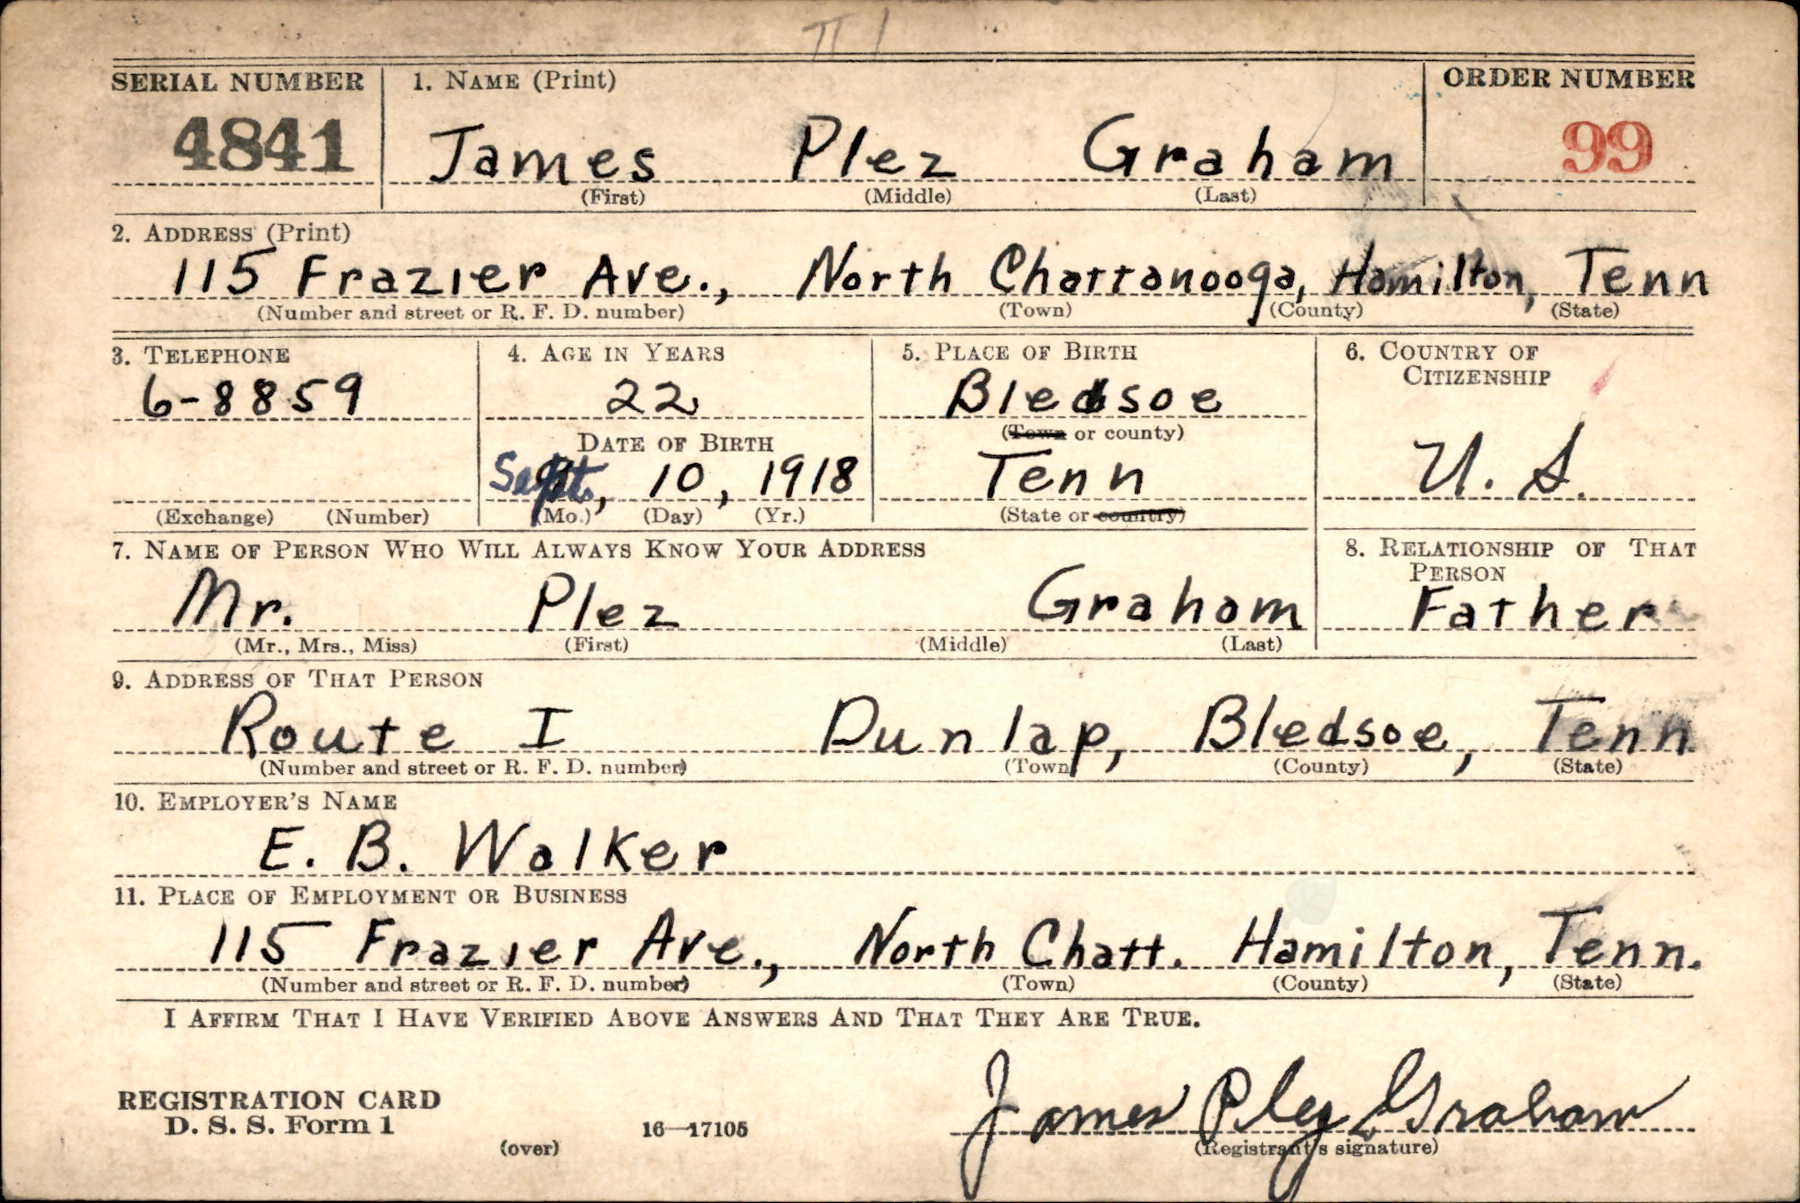 SERIAL NUMBER 1. NAME (Print) ORDER NUMBER
4841 James Plez Graham 99
(First) (Middle) (Last)
2. ADDRESS (Print)
115 Frazier Ave., North Chattanooga, Hamilton, Tenn
(Number and street or R. F. D. number) (Town) (County) (State)
3. TELEPHONE 4. AGE IN YEARS 5. PLACE OF BIRTH 6. COUNTRY OF
CITIZENSHIP
6-8859 22 Bledsoe
DATE OF BIRTH (Town or county)
Sept., 10, 1918 Tenn U. S.
(Exchange) (Number) (Mo.) (Day) (Yr.) (State or country)
7. NAME OF PERSON WHO WILL ALWAYS KNOW YOUR ADDRESS 8. RELATIONSHIP OF THAT
PERSON
Mr. Plez Graham Father
(Mr., Mrs., Miss) (First) (Middle) (Last)
9. ADDRESS OF THAT PERSON
Route I Dunlap, Bledsoe, Tenn
(Number and street or R. F. D. number) (Town) (County) (State)
10. EMPLOYER'S NAME
E. B. Walker
11. PLACE OF EMPLOYMENT OR BUSINESS
115 Frazier Ave., North Chatt. Hamilton, Tenn.
(Number and street or R. F. D. number) (Town) (County) (State)
I AFFIRM THAT I HAVE VERIFIED ABOVE ANSWERS AND THAT THEY ARE TRUE.
James Plez Graham
REGISTRATION CARD
D. S. S. Form 1
(over) 16—17105 (Registrant's signature)